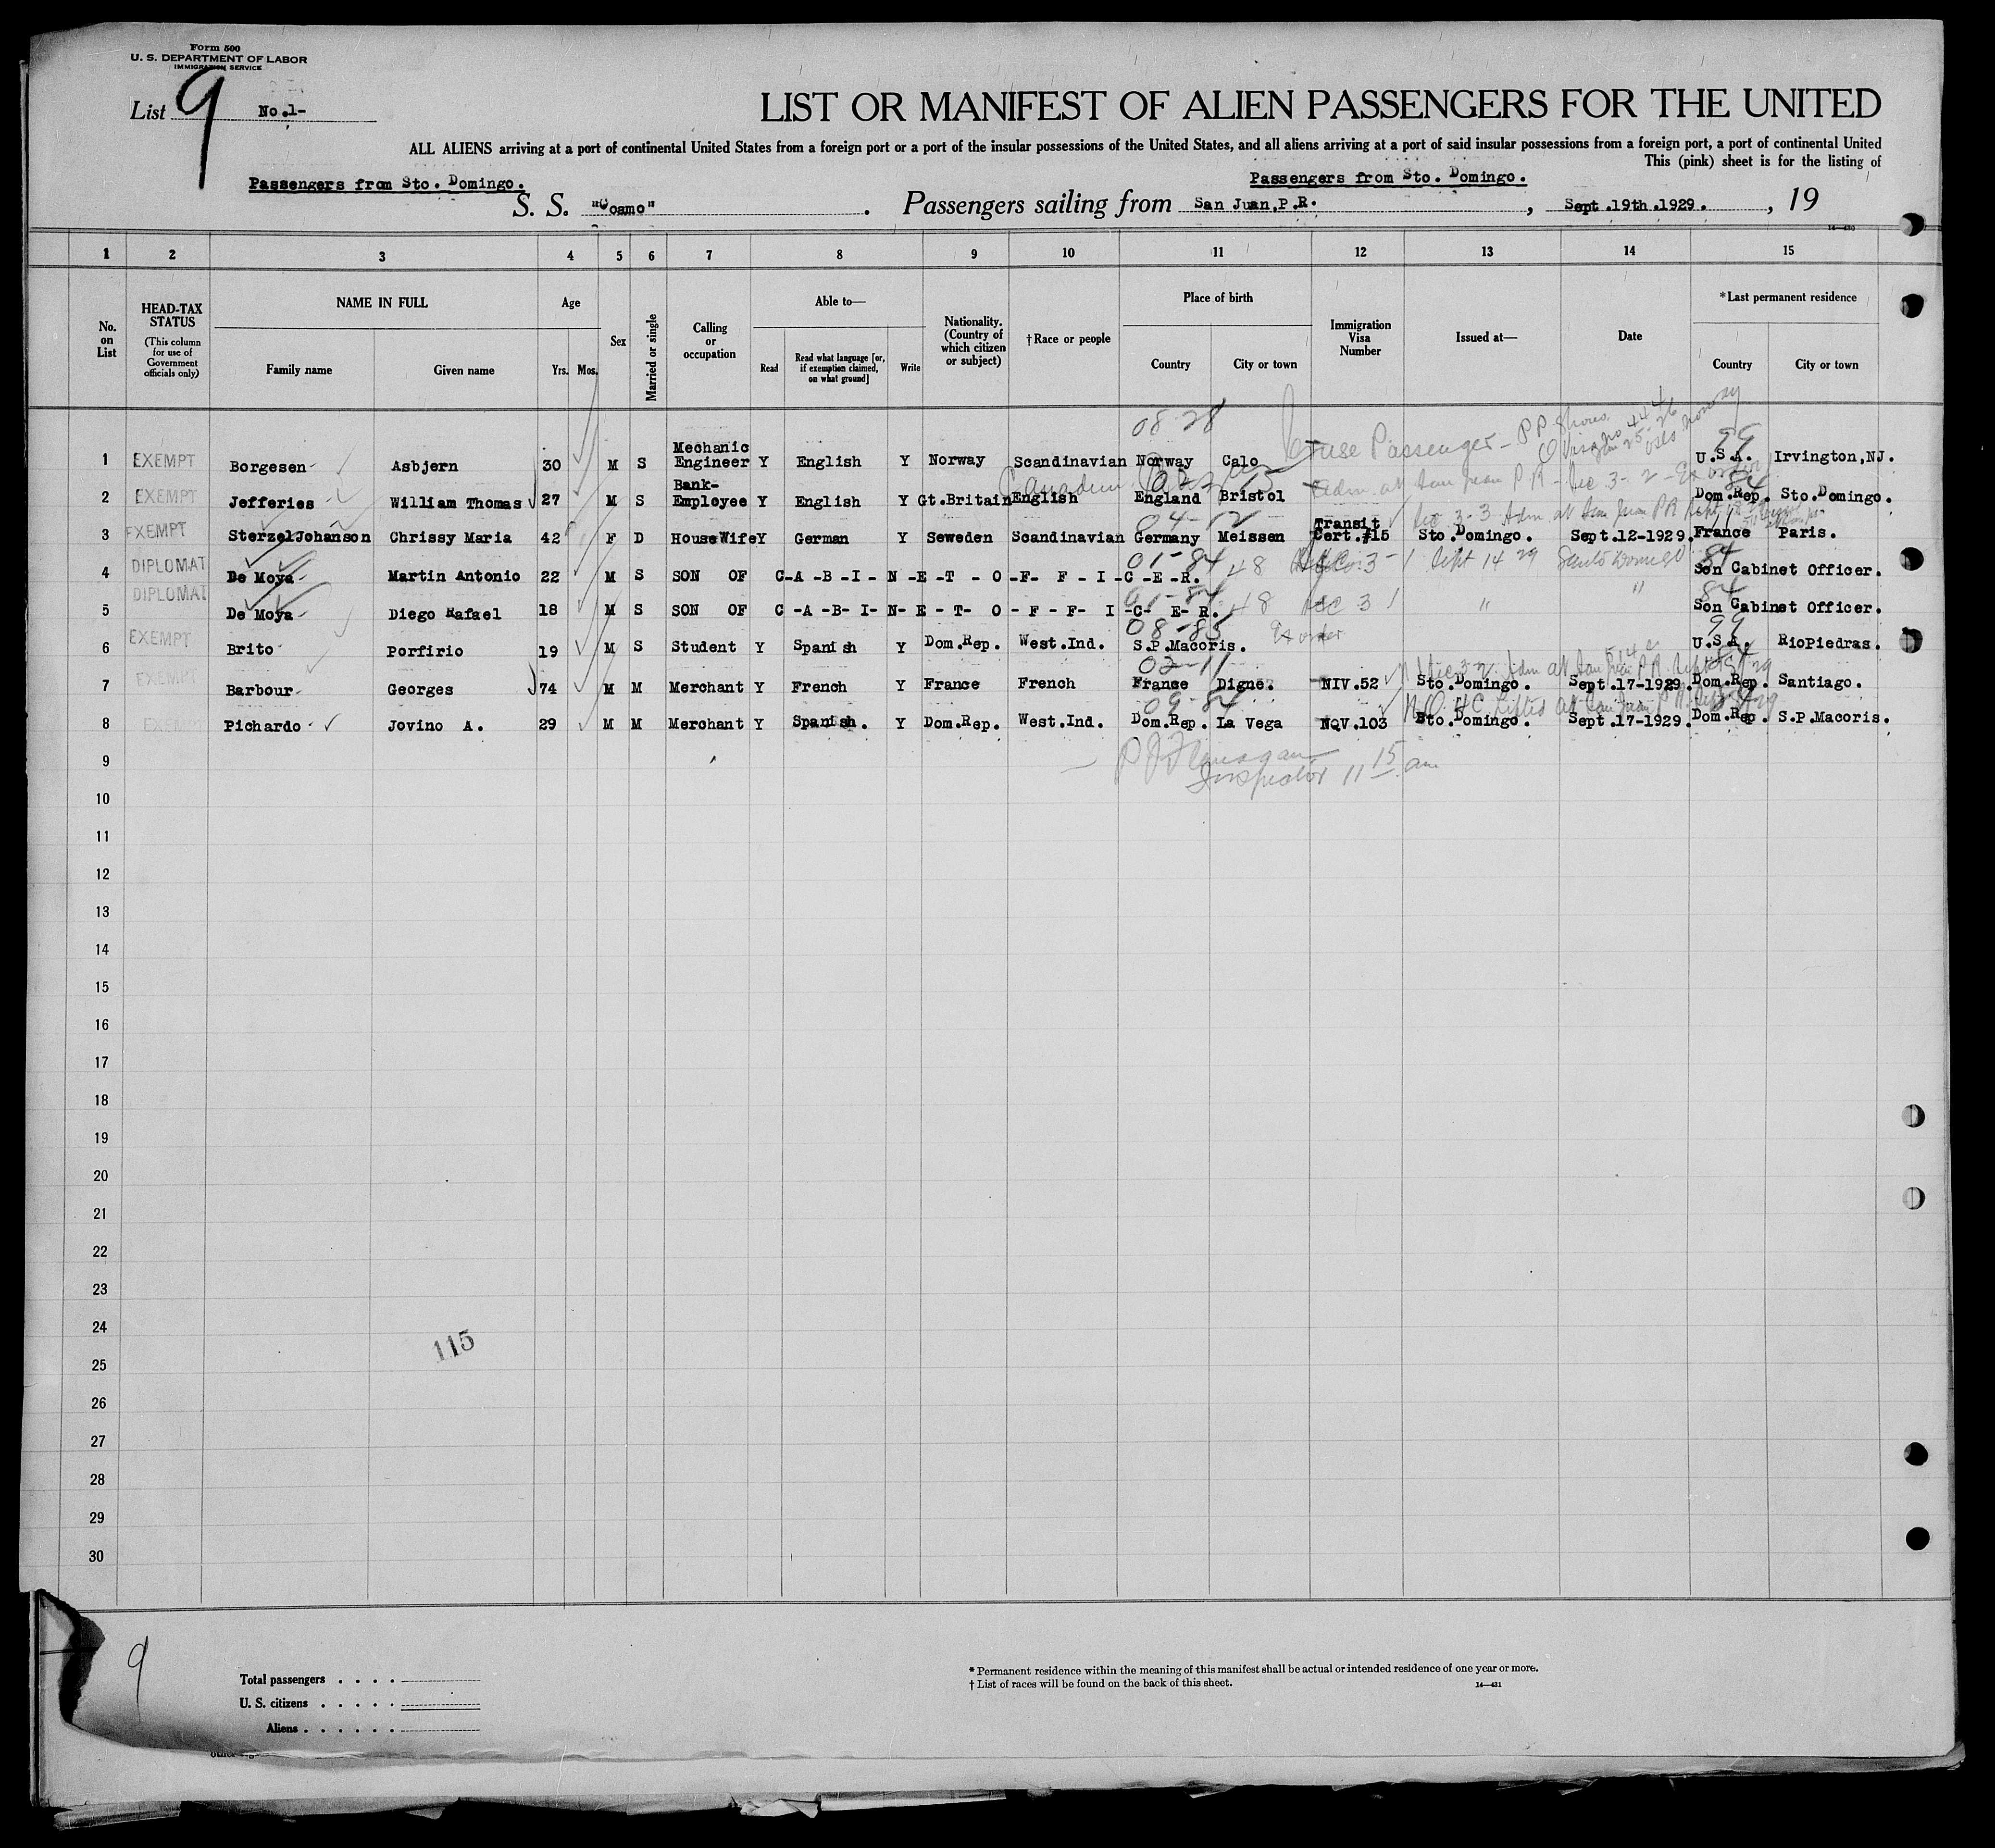 Form 500
U. S. DEPARTMENT OF LABOR
IMMIGRATION SERVICE
List 9 No.1-
LIST OR MANIFEST OF ALIEN PASSENGERS FOR THE UNITED
ALL ALIENS arriving at a port of continental United States from a foreign port or a port of the insular possessions of the United States, and all aliens arriving at a port of said insular possessions from a foreign port, a port of continental United
This (pink) sheet is for the listing of
Passengers from Sto. Domingo. Passengers from Sto. Domingo.
S. S. "Coamo" . Passengers sailing from San Juan,P.R. , Sept.19th.1929. , 19
14—430
1 2 3 4 5 6 7 8 9 10 11 12 13 14 15
No. on List
HEAD-TAX STATUS
(This column for use of Government officials only)
NAME IN FULL
Family name Given name
Age
Yrs. Mos.
Sex
Married or single
Calling or occupation
Able to—
Read Read what language [or, if exemption claimed, on what ground] Write
Nationality. (Country of which citizen or subject)
†Race or people
Place of birth
Country City or town
Immigration Visa Number
Issued at—
Date
*Last permanent residence
Country City or town
08-28
Passenger - PP
99
1 EXEMPT Borgesen Asbjern 30 M S Mechanic Engineer Y English Y Norway Scandinavian Norway Calo U.S.A. Irvington,NJ.
Adm. at San Juan P R - Sec 3-2 - Ex order
84
2 EXEMPT Jefferies William Thomas 27 M S Bank-Employee Y English Y Gt.Britain English England Bristol Dom.Rep. Sto.Domingo.
Sec 3-3 Adm at San Juan PR
3 EXEMPT Sterzel Johanson Chrissy Maria 42 F D HouseWife Y German Y Seweden Scandinavian Germany Meissen Transit Cert.#15 Sto.Domingo. Sept.12-1929. France Paris.
01-84 48 Sec 3-1 Sept 14 29 Santo Domingo 84
4 DIPLOMAT De Moya Martin Antonio 22 M S SON OF C-A-B-I-N-E-T - O-F-F-I-C-E-R. Son Cabinet Officer.
01-84 48 Sec 3 1 " " 84
5 DIPLOMAT De Moya Diego Rafael 18 M S SON OF C-A-B-I-N-E-T- O-F-F-I-C-E-R. Son Cabinet Officer.
08-85 Ex order 99
6 EXEMPT Brito Porfirio 19 M S Student Y Spanish Y Dom.Rep. West.Ind. S.P.Macoris. U.S.A. RioPiedras.
02-11 Sec 3-2 Adm at San Juan P.R. Sept
7 EXEMPT Barbour Georges 74 M M Merchant Y French Y France French France Digne. NIV.52 Sto.Domingo. Sept.17-1929. Dom.Rep. Santiago.
09-84 lifted at San Juan P R
8 EXEMPT Pichardo Jovino A. 29 M M Merchant Y Spanish. Y Dom.Rep. West.Ind. Dom.Rep. La Vega NQV.103 Sto.Domingo. Sept.17-1929. Dom.Rep. S.P.Macoris.
9 P J Flanagan
Inspector 11 15 am
10
11
12
13
14
15
16
17
18
19
20
21
22
23
24
115
25
26
27
28
29
30
9
Total passengers . . . .
U. S. citizens . . . . .
Aliens . . . . . .
* Permanent residence within the meaning of this manifest shall be actual or intended residence of one year or more.
† List of races will be found on the back of this sheet.
14—431